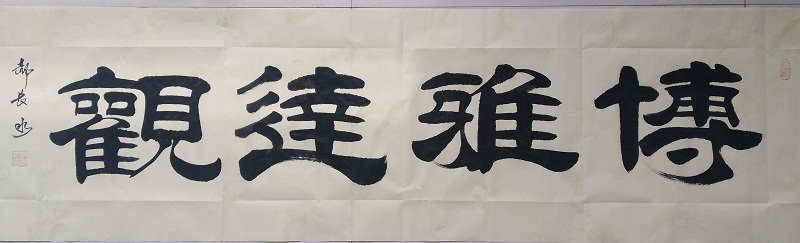 博雅達觀
郝長